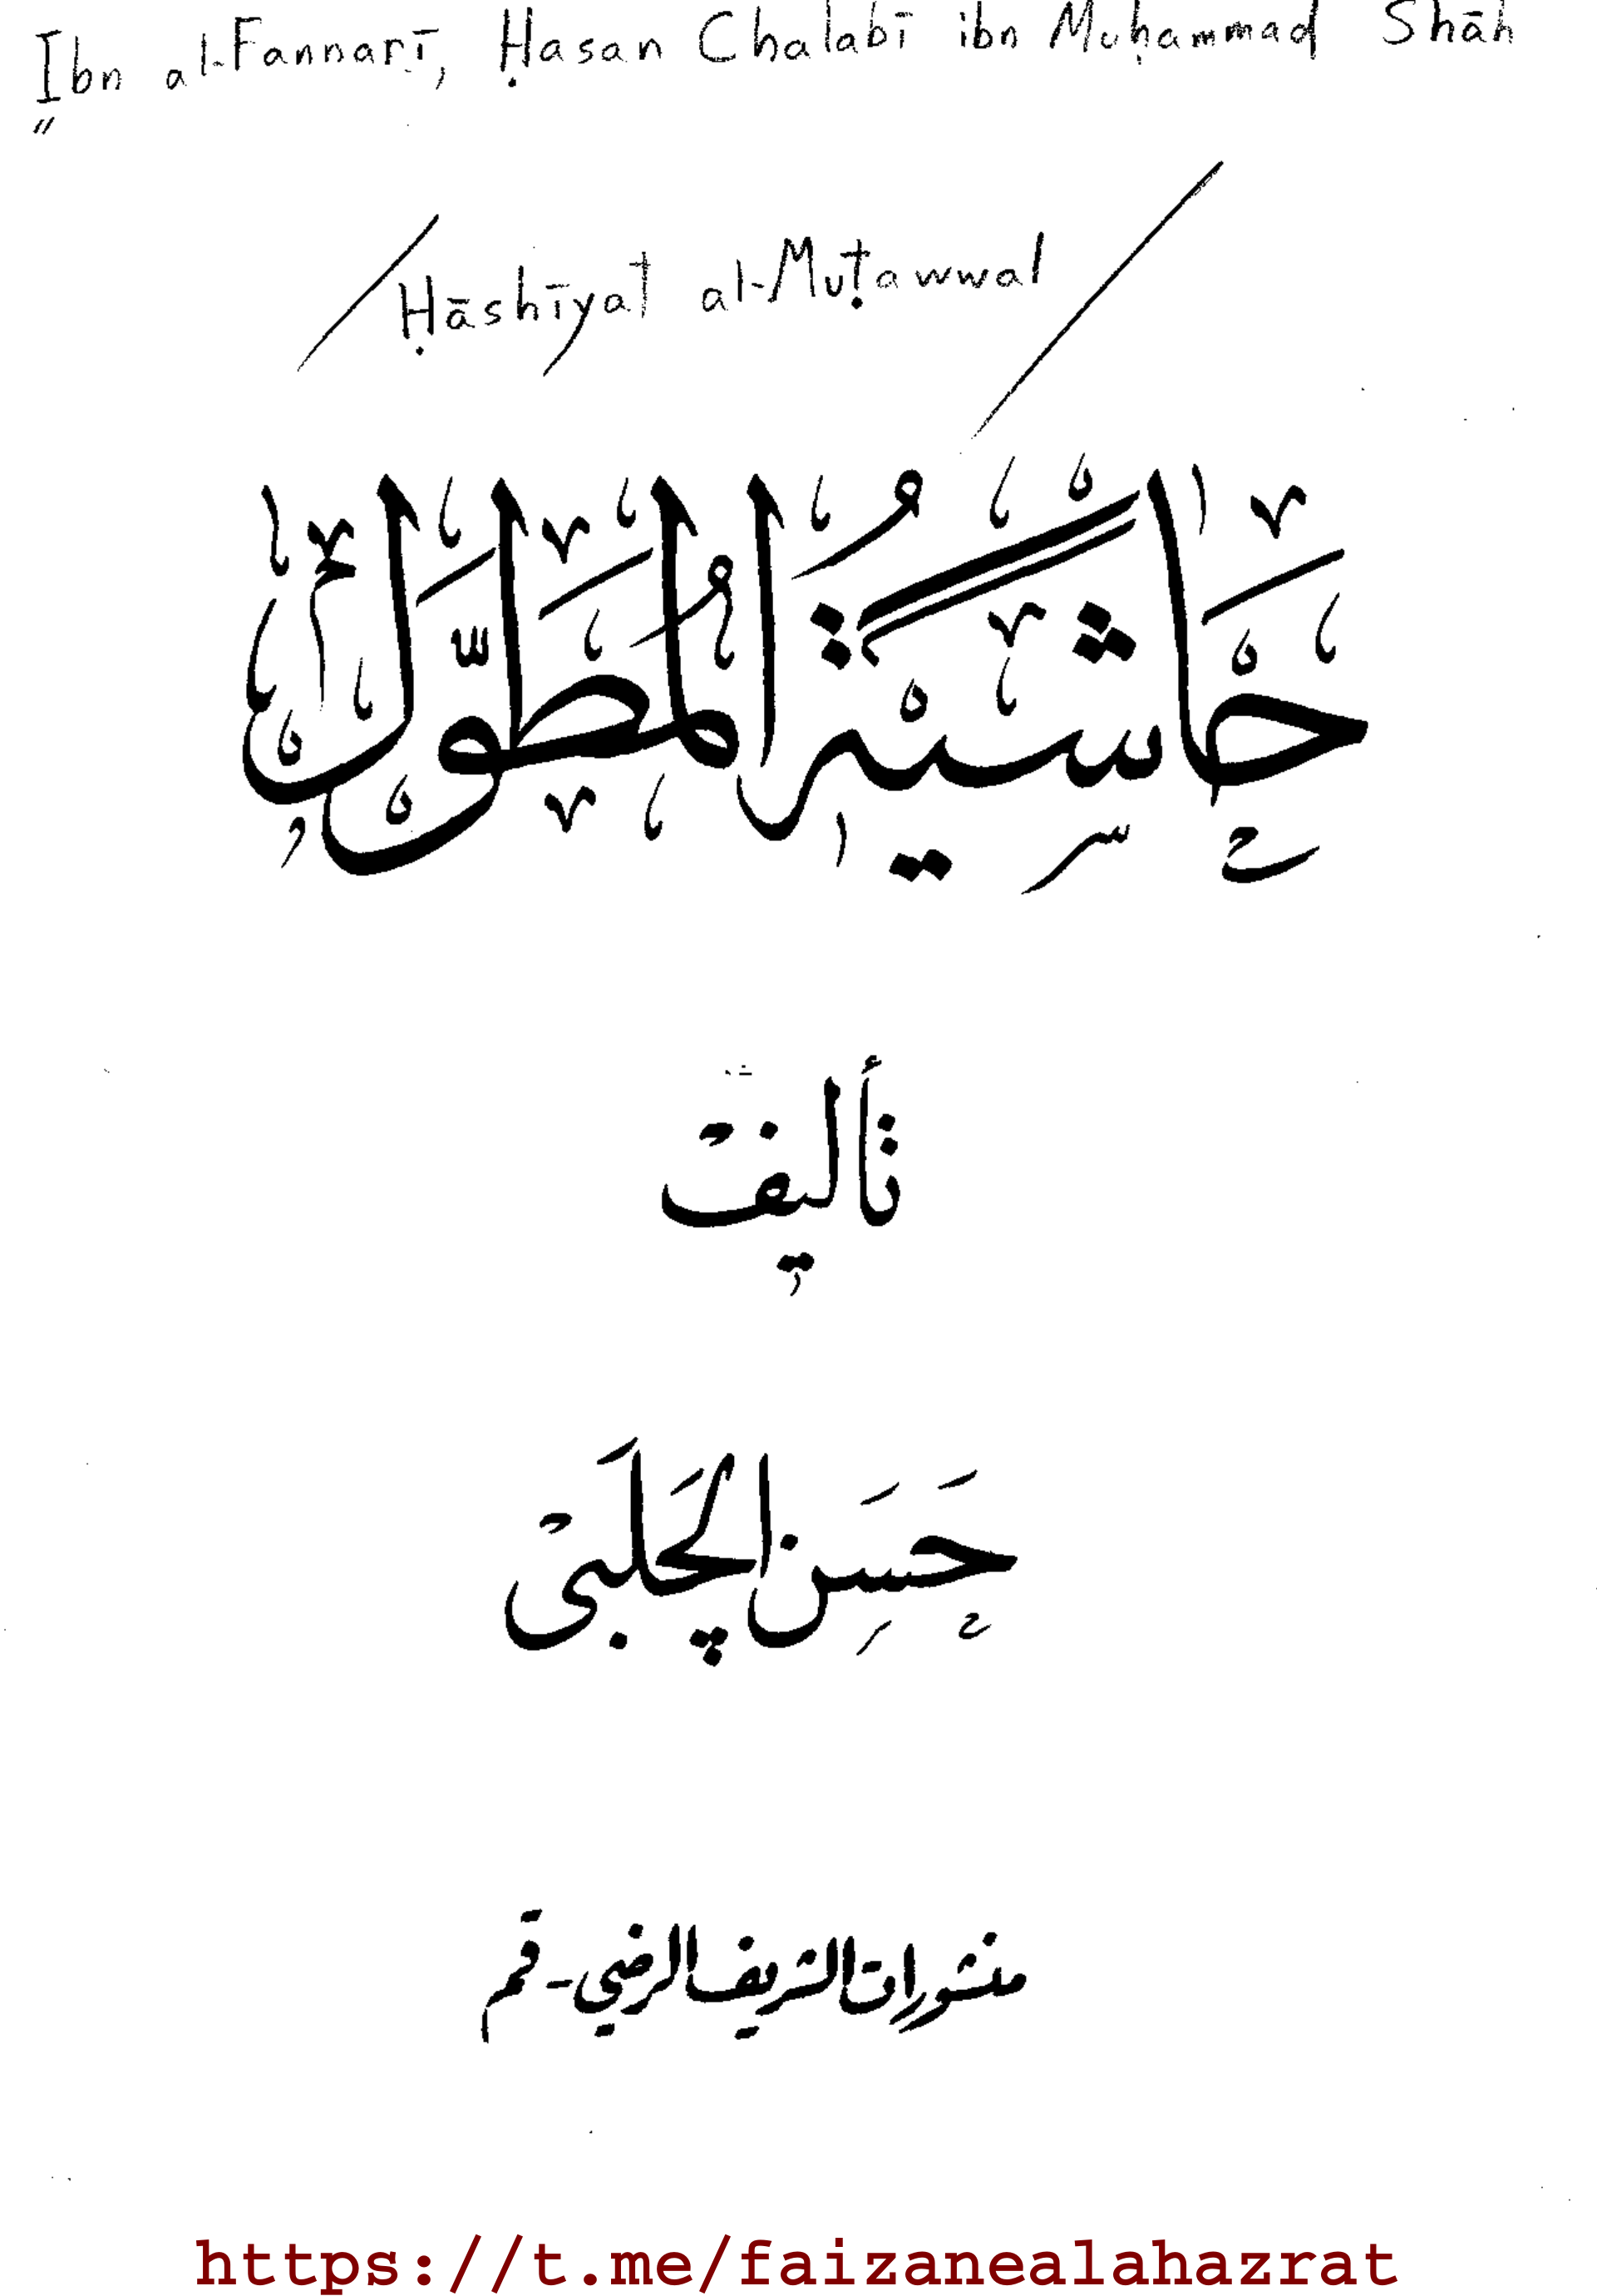 Ibn al-Fannarī, Ḥasan Chalabī ibn Muḥammad Shāh
Ḥāshīyat al-Muṭawwal
حَاشيةُ المُطَوَّل
تأليف
حَسَن الچَلَبي
منشورات الشريف الرضي - قم
https://t.me/faizanealahazrat